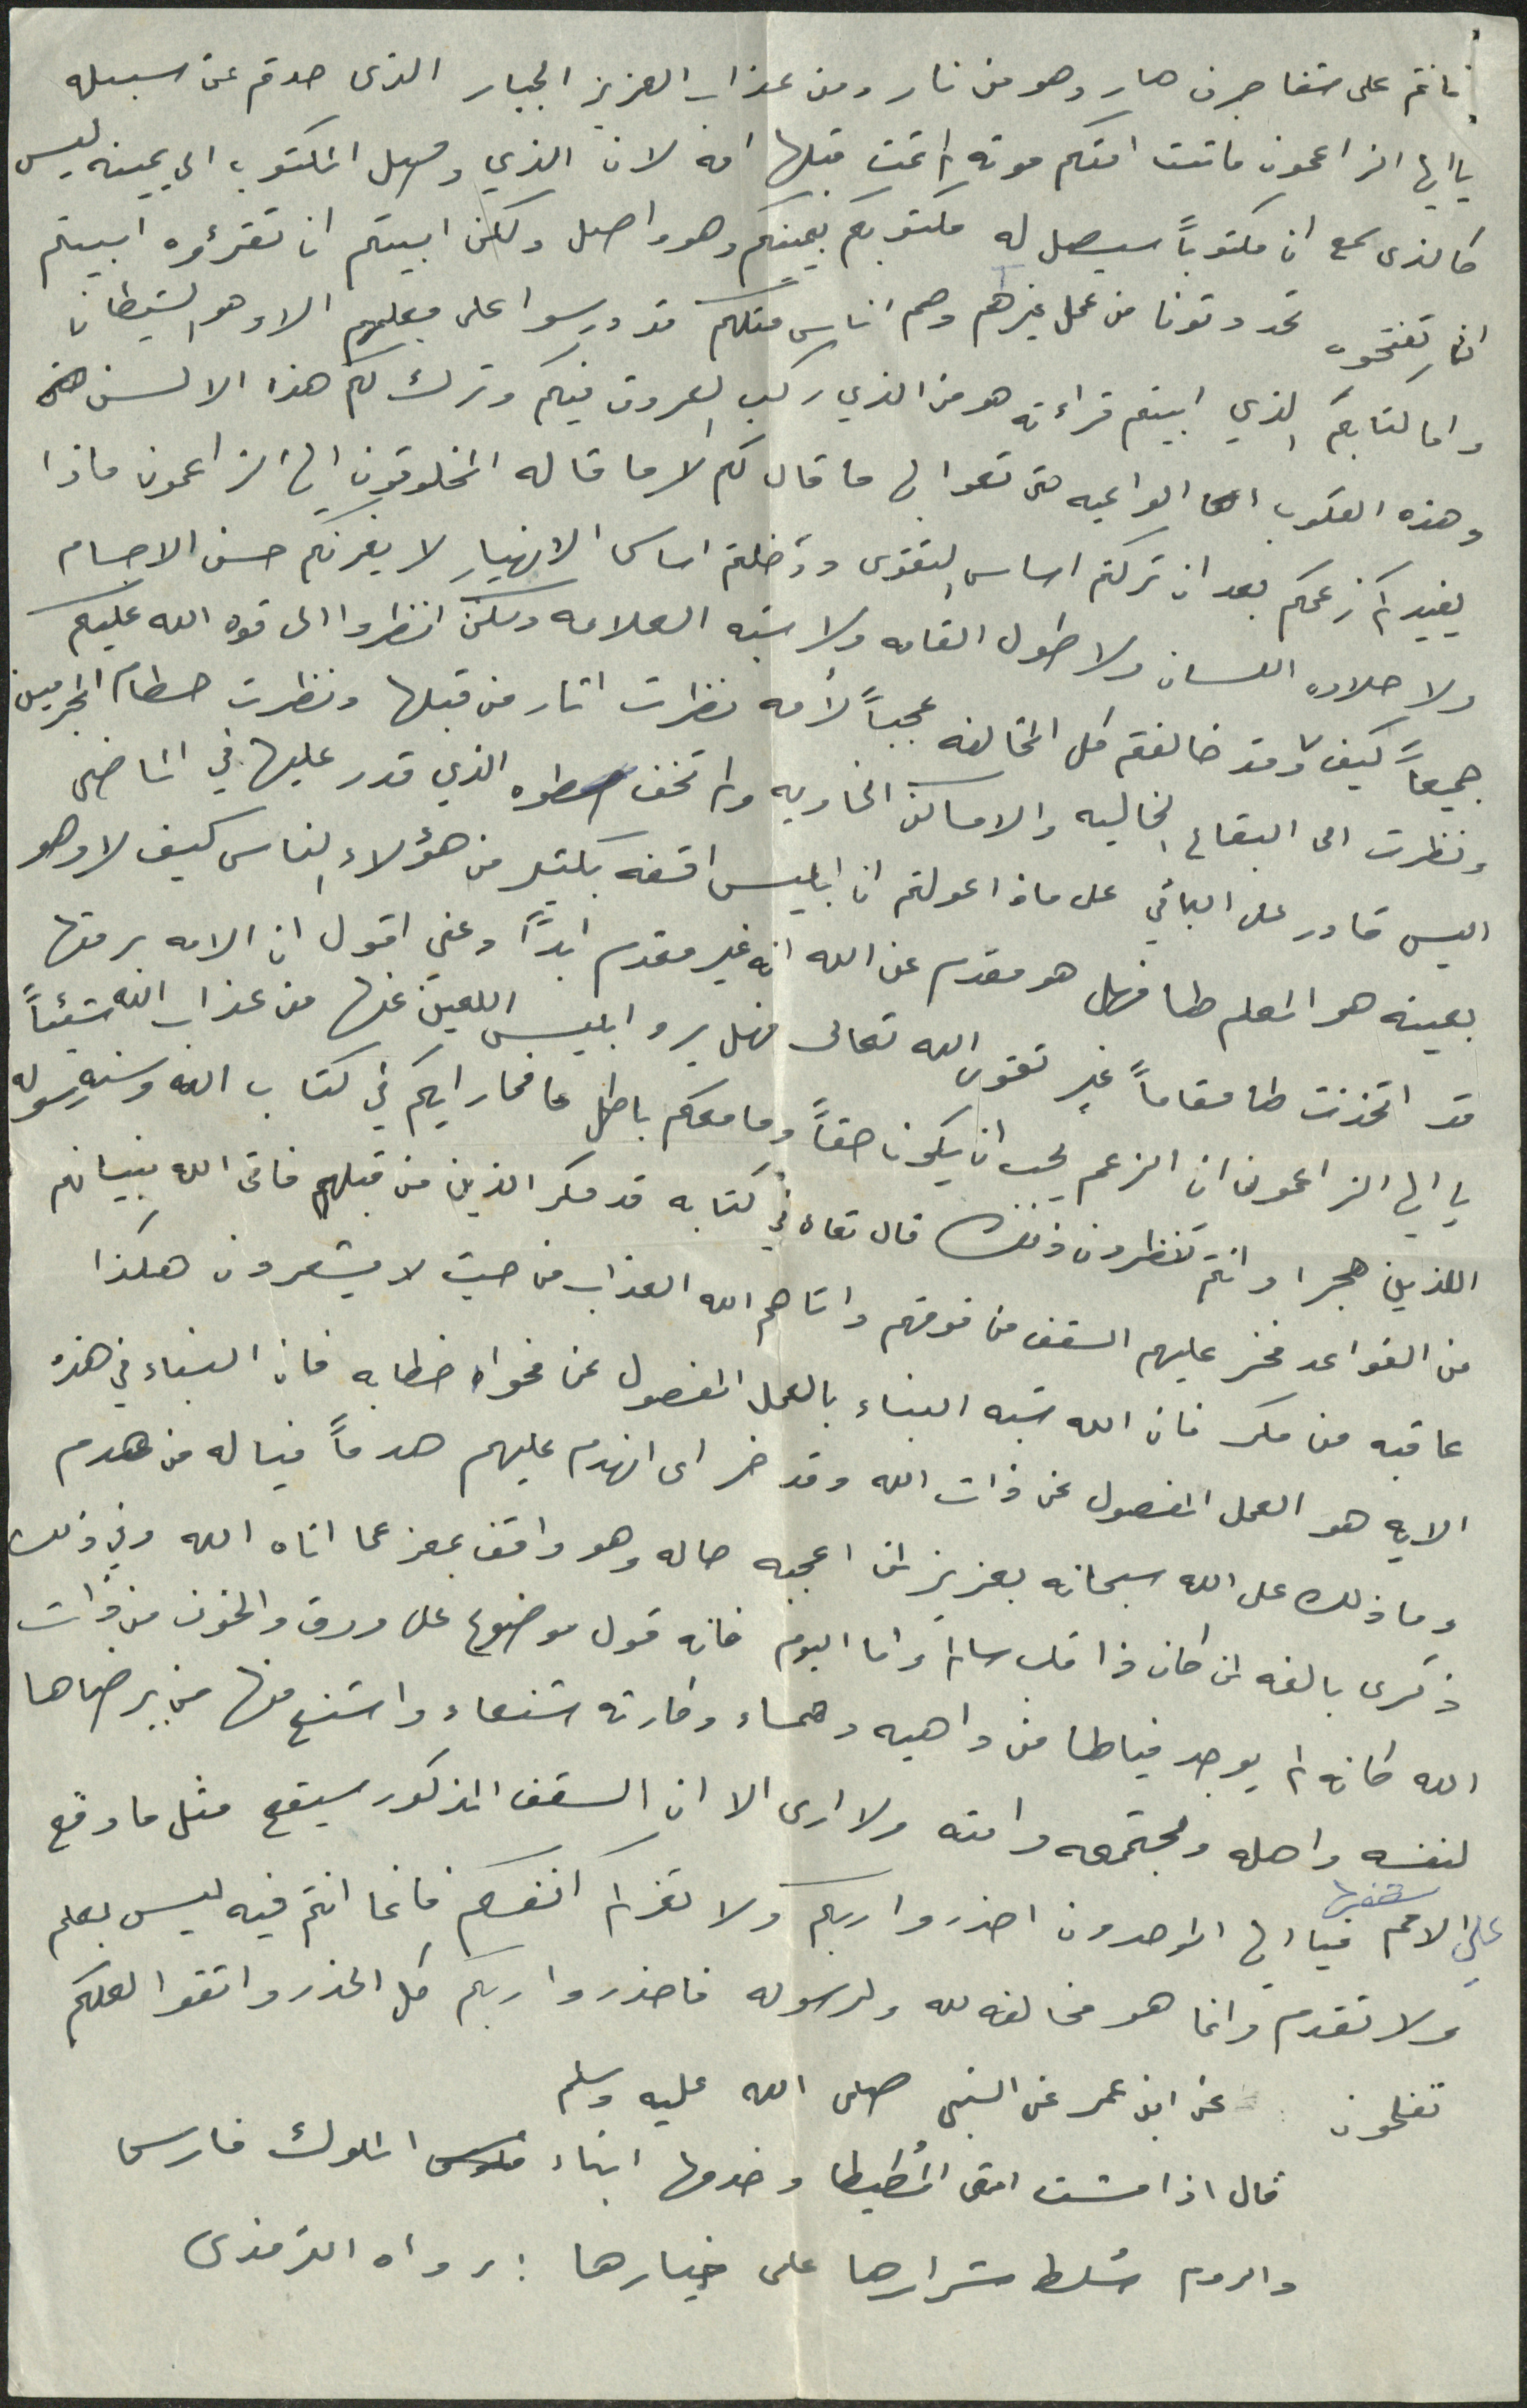 فانتم على شفا جرف هار وهو من نار ومن عذاب العزيز الجبار الذى صدقتم عن سبيله
يا ايها الزاعمون ماتت امتكم موته لم تمت قبلها امه لان الذي وصل المكتوب الى يمينه ليس
كالذى سمع ان مكتوباً سيصل له مكتوبكم بيمينكم وهو واصل ولكن ابيتم ان تقرؤه ابيتم
ان تفتحوه تحدوثونا من عمل غيرهم وهم اناس مثلكم قد درسوا على معلمهم الا وهو الشيطان
واما كتابكم الذي ابيتم قراءته هو من الذي ركب العروق فيكم وترك لكم هذا الالسن
وهذه القلوب الواعيه حتى تعوا بها ما قال لكم لا ما قاله المخلوقون ايها الزاعمون ماذا
يفيدكم زعمكم بعد ان تركتم اساس التقوى ودخلتم اساس الانهيار لا يغرنكم حسن الاجسام
ولا حلاوه اللسان ولا طول القامه ولا شبه العلامه ولكن انظروا الى قوه الله عليكم
جميعاً كيف لا وقد خالفتم كل المخالفه عجباً لأمه نظرت اثار من قبلها ونظرت حطام المجرمين
ونظرت الى البقاع الخاليه والاماكن الخاويه ولم تخف سطوه الذي قدر عليها في الماضى
اليس قادر على الباقي على ماذا عولتم ان ابليس افقه بكثير من هؤلاء الناس كيف لا وهو
بعينه هو المعلم لها فهل هو مقدم عن الله انه غير مقدم ابداً وعني اقول ان الامه برمتها
قد اتخذت لها مقاماً غير تقوى الله تعالى فهل يرد ابليس اللعين عنها من عذاب الله شيئاً
يا ايها الزاعمون ان الزعم يجب ان يكون حقاً وما معكم باطل فما رايكم في كتاب الله وسنه رسوله
اللذين هجرا وانتم تنظرون ذلك قال تعالى في كتابه قد مكر الذين من قبلهم فاتى الله بنيانهم
من القواعد فخر عليهم السقف من فوقهم واتاهم الله العذاب من حيث لا يشعرون هكذا
عاقبه من مكر فان الله شبه البناء بالعمل المفصول عن فحواه خطابه فان البناء في هذه
الايه هو العمل المفصول عن ذات الله وقد خر اى انهدم عليهم هدماً فياله من هدم
وما ذلك على الله سبحانه بعزيز لمن اعجبه حاله وهو واقف بمعزل عما اتاه الله وفي ذلك
ذكرى بالغه لمن كان ذا قلب سالم واما اليوم فانه قول موضوع على ورق والخوف من ذات
الله كانه لم يوجد فيالها من داهيه دهماء وكارثه شنعاء واشنع منها من يرضاها
لنفسه واهله ومجتمعه وامته ولا ارى الا ان السقف المذكور سيقع مثل ما وقع
سقفها
على الامم فيا ايها الموحدون احذروا ربكم ولا تغركم انفسكم فانما انتم فيه ليس بعلم
ولا تقدم وانما هو مخالفه لله ولرسوله فاحذروا ربكم كل الحذر واتقوا لعلكم
تفلحون عن ابن عمر عن النبى صلى الله عليه وسلم
قال اذا مشت امتى المُطيطا وخدمها ابناء الملوك فارس
والروم سُلط شرارها على خيارها : رواه الترمذى